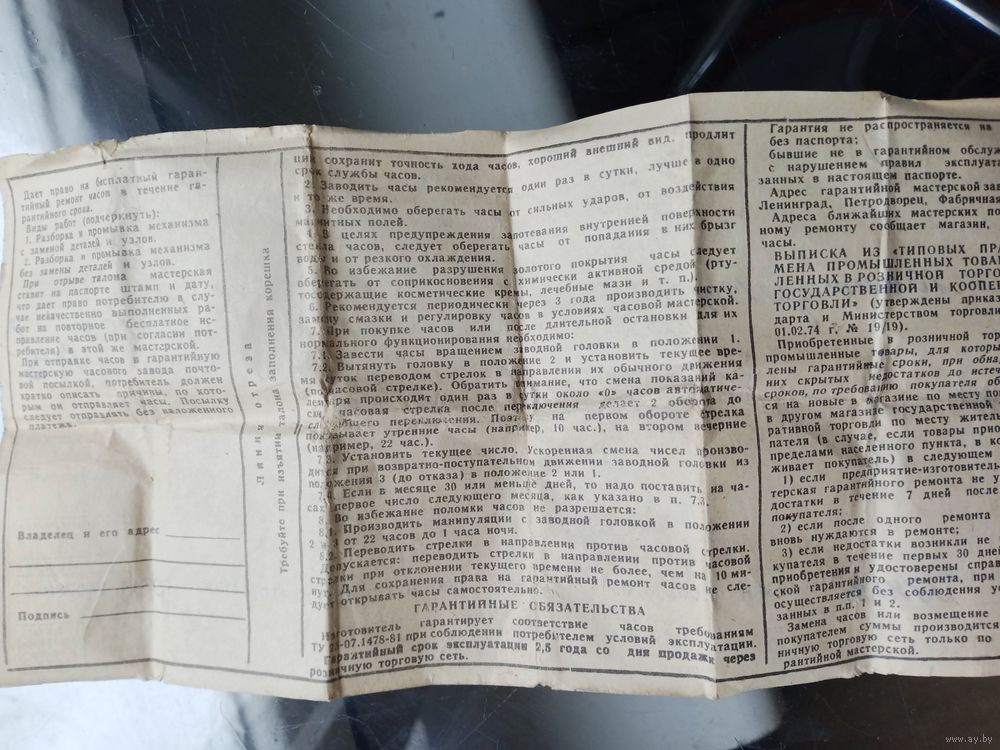 Дает право на бесплатный гаран-
тийный ремонт часов в течение га-
рантийного срока.
Виды работ (подчеркнуть):
1. Разборка и промывка механизма
с заменой деталей и узлов.
2. Разборка и промывка механизма
без замены деталей и узлов.
При отрыве талона мастерская
ставит на паспорте штамп и дату,
что дает право потребителю в слу-
чае некачественно выполненных ра-
бот на повторное бесплатное ис-
правление часов (при согласии пот-
ребителя) в этой же мастерской.
При отправке часов в гарантийную
мастерскую часового завода почто-
вой посылкой, потребитель должен
кратко описать причины, по кото-
рым он отправляет часы. Посылку
следует отправлять без наложенного
платежа.
Владелец и его адрес
Подпись
Линия отреза
Требуйте при изъятии талона заполнения корешка
ции сохранит точность хода часов, хороший внешний вид, продлит
срок службы часов.
2. Заводить часы рекомендуется один раз в сутки, лучше в одно
и то же время.
3. Необходимо оберегать часы от сильных ударов, от воздействия
магнитных полей.
4. В целях предупреждения запотевания внутренней поверхности
стекла часов, следует оберегать часы от попадания в них брызг
воды и от резкого охлаждения.
5. Во избежание разрушения золотого покрытия часы следует
оберегать от соприкосновения с химически активной средой (рту-
тосодержащие косметические кремы, лечебные мази и т. п.).
6. Рекомендуется периодически через 3 года производить чистку,
замену смазки и регулировку часов в условиях часовой мастерской.
7. При покупке часов или после длительной остановки для их
нормального функционирования необходимо:
7.1. Завести часы вращением заводной головки в положении 1.
7.2. Вытянуть головку в положение 2 и установить текущее вре-
мя суток переводом стрелок в направлении их обычного движения
(по часовой стрелке). Обратить внимание, что смена показаний ка-
лендаря происходит один раз в сутки около «0» часов автоматиче-
ски, часовая стрелка после переключения делает 2 оборота до
следующего переключения. Поэтому на первом обороте стрелка
показывает утренние часы (например, 10 час.), на втором вечерние
(например, 22 час.).
7.3. Установить текущее число. Ускоренная смена чисел произво-
дится при возвратно-поступательном движении заводной головки из
положения 3 (до отказа) в положение 2 или 1.
7.4. Если в месяце 30 или меньше дней, то надо поставить на ча-
сах первое число следующего месяца, как указано в п. 7.3.
8. Во избежание поломки часов не разрешается:
8.1. Производить манипуляции с заводной головкой в положении
2 и 3 от 22 часов до 1 часа ночи.
8.2. Переводить стрелки в направлении против часовой стрелки.
Допускается: переводить стрелки в направлении против часовой
стрелки при отклонении текущего времени не более, чем на 10 ми-
нут. Для сохранения права на гарантийный ремонт часов не сле-
дует открывать часы самостоятельно.
ГАРАНТИЙНЫЕ ОБЯЗАТЕЛЬСТВА
Изготовитель гарантирует соответствие часов требованиям
ТУ 25-07.1478-81 при соблюдении потребителем условий эксплуатации.
Гарантийный срок эксплуатации 2,5 года со дня продажи через
розничную торговую сеть.
Гарантия не распространяется на
без паспорта;
бывшие не в гарантийном обслуж
с нарушением правил эксплуата
занных в настоящем паспорте.
Адрес гарантийной мастерской зав
Ленинград, Петродворец, Фабричная
Адреса ближайших мастерских по
ному ремонту сообщает магазин,
часы.
ВЫПИСКА ИЗ «ТИПОВЫХ ПРА
МЕНА ПРОМЫШЛЕННЫХ ТОВА
ЛЕННЫХ В РОЗНИЧНОЙ ТОРГО
ГОСУДАРСТВЕННОЙ И КООПЕ
ТОРГОВЛИ» (утверждены приказ
дарта и Министерством торговли
01.02.74 г. № 19/19).
Приобретенные в розничной тор
промышленные товары, для котор
лены гарантийные сроки, при обна
них скрытых недостатков до истеч
сроков, по требованию покупателя об
ся на новые в магазине по месту по
в другом магазине государственной
ративной торговли по месту жител
пателя (в случае, если товары прио
пределами населенного пункта, в ко
живает покупатель) в следующем
1) если предприятие-изготовитель
терская гарантийного ремонта не у
достатки в течение 7 дней после
покупателя;
2) если после одного ремонта
вновь нуждаются в ремонте;
3) если недостатки возникли не
купателя в течение первых 30 дней
приобретения и удостоверены справ
ской гарантийного ремонта, при
осуществляется без соблюдения ус
занных в п.п. 1 и 2.
Замена часов или возмещение
покупателем суммы производится
ничную торговую сеть только по
рантийной мастерской.
www.ay.by